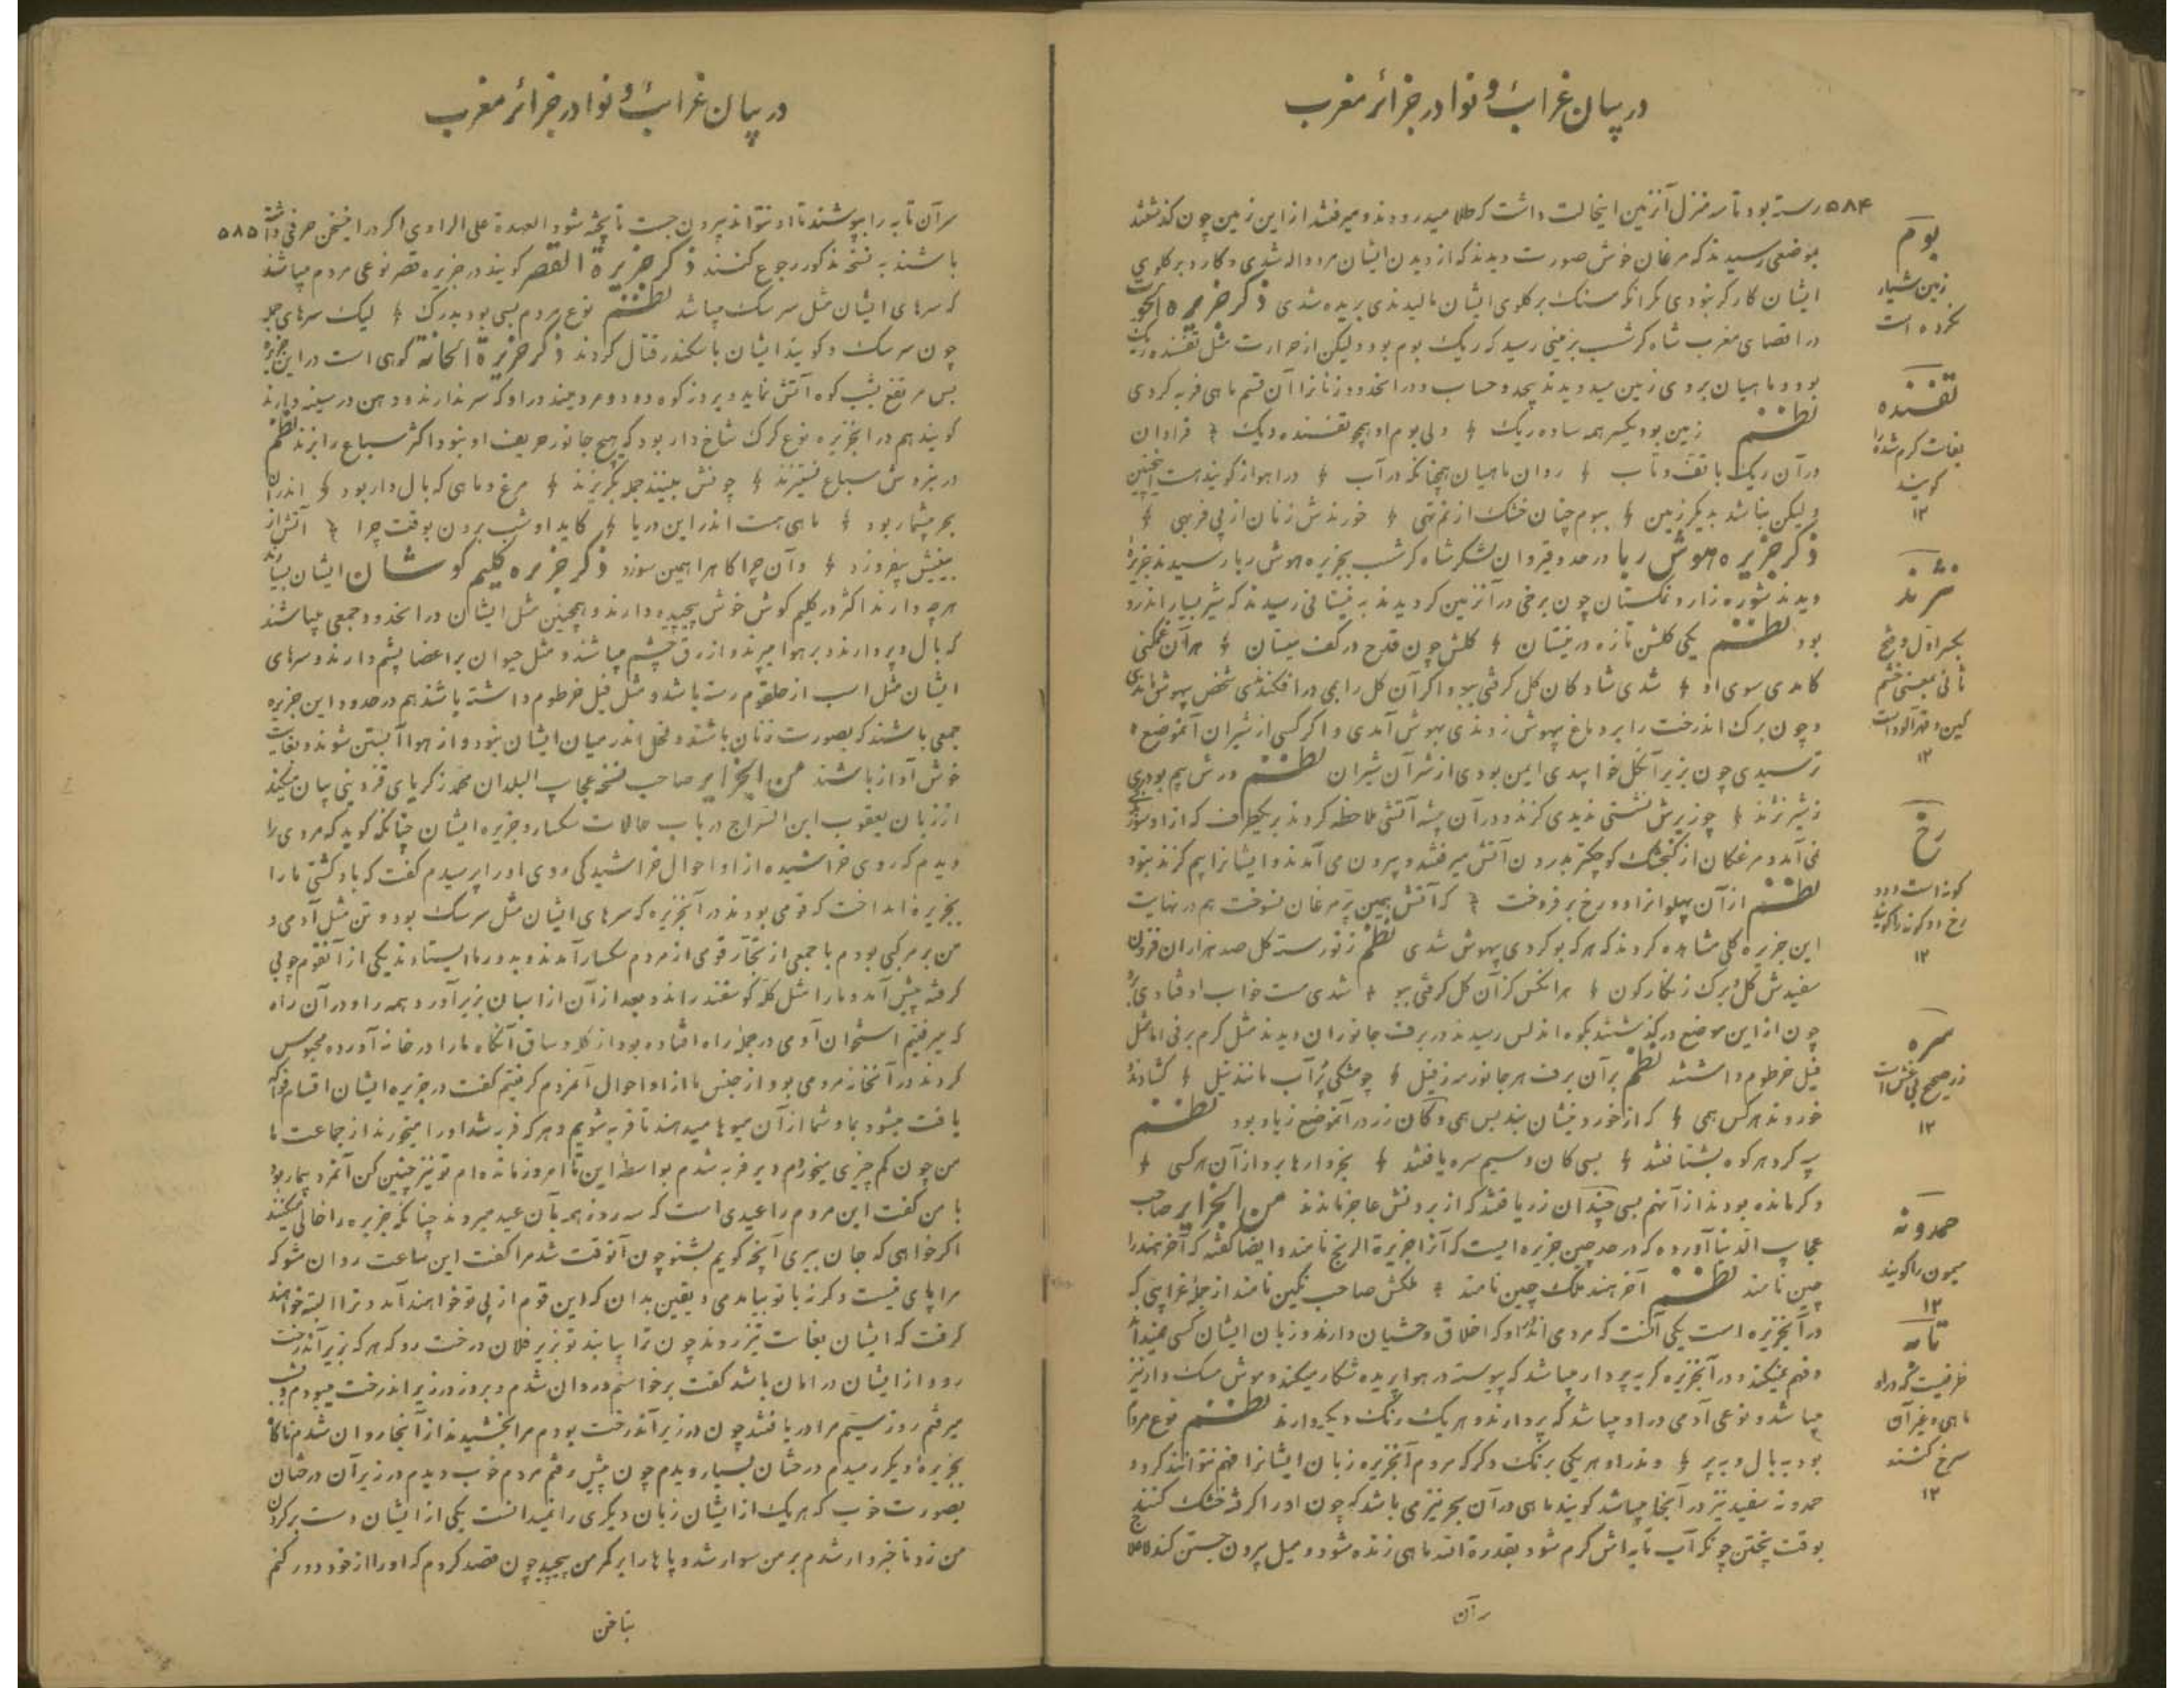 در بیان غرائب و نوادر جزائر مغرب
۵۸۴
رسته بود تا سه منزل آنزمین اینحالت داشت که طلا میدرودند و میرفتند از این زمین چون گذشتند
بموضعی رسیدند که مرغان خوش صورت دیدند که از دیدن ایشان مرد واله شدی و کارد بر گلوی
ایشان کارگر نبودی مگر آنکه سنگ بر گلوی ایشان مالیدندی بریده شدی ذکر جزیره
در اقصای مغرب شاه کرشب بزمینی رسید که ریگ بوم بود ولیکن از حرارت مثل تفسنده
بود و ماهیان بروی زمین سید دیدند بیحد و حساب و در آنحدود زنانرا آن قسم ماهی فربه کردی
نظم زمین بود یکسر همه ساده ریگ ولی بوم او همچو تفسنده دیگ فراوان
در آن ریگ با تف و تاب روان ماهیان همچنانکه در آب در اهواز گویند هست اینچنین
ولیکن نباشد بدیگر زمین ببوم چنان خشک از نم تهی خورندش زنان از پی فربهی
ذکر جزیره هوش ربا در حدود قیروان لشکر شاه کرشب بجزیره هوش ربا رسیدند جزیرهٔ
دیدند شوره زار و نمکستان چون برخی در آنزمین گردیدند به نیستانی رسیدند که شیر بسیار اندرو
بود نظم یکی گلشن تازه در نیستان گلش چون قدح در کف نیستان هر آن غمگنی
کامدی سوی او شدی شاد کان گل گرفتی ببو و اگر آن گل را بمی در افکندندی شخص بیهوش ماندی
و چون برگ اندرخت را بر دماغ بیهوش زدندی بهوش آمدی و اگر کسی از شیران آنموضع
ترسیدی چون بزیر آنگل خوابیدی ایمن بودی از شر آن شیران نظم ورش بیم بودی
ز شیر نژند چو زیرش نشستی ندیدی گزند و در آن بیشه آتشی ملاحظه کردند بریکطرف که از او
می آمد و مرغکان از گنجشک کوچکتر بدرون آتش میرفتند و بیرون می آمدند و ایشانرا بیم گزند نبود
نظم از آن پهلوانرا دو رخ بر فروخت که آتش بهین پر مرغان نسوخت هم در نهایت
این جزیره گلی مشاهده کردند که هر که بو کردی بیهوش شدی نظم ز نو رسته گل صد هزاران فزون
سفیدش گل و برگ زنگار گون هر انکس کزان گل گرفتی ببو شدی مست خواب اوفتادی
چون از این موضع در گذشتند بکوه اندلس رسیدند در برف جانوران دیدند مثل کرم برفی اما مثل
فیل خرطوم داشتند نظم بر آن برف هر جانور سر ز فیل چو مشکی پر آب مانند نیل گشادند
خوردند هر کس همی که از خوردنیشان نبد بس همی و کان زر در آنموضع زیاد بود نظم
به گرد هر کوه بشتافتند بسی کان و سیم سره یافتند بخروارها برد از آن هر کسی
دگر مانده بودند از آنهم بسی چندان زر یافتند که از بردنش عاجز ماندند من الجزایر صاحب
عجایب الدنیا آورده که در حد چین جزیره ایست که آنرا جزیرة الرنج نامند و ایضا گفته که آخر هند را
چین نامند نظم آخر هند ملک چین نامند ملکش صاحب نگین نامند از جمله غرایبی که
در آنجزیره است یکی آنست که مردمی اندراو که اخلاق وحشیان دارند و زبان ایشان کسی نمیداند
و فهم نمیکند و در آنجزیره گربه پردار میباشد که پیوسته در هوا پریده شکار میکند و موش مشک دار نیز
میباشد و نوعی آدمی در او میباشد که پر دارند و هر یک رنگ دیگر دارند نظم نوع مردم
بود به بال و به پر وندر او هر یکی برنگ دگر که مردم آنجزیره زبان ایشانرا فهم نتوانند کرد و
حمدونه سفید نیز در آنجا میباشد گویند ماهی در آن بحر نیز می باشد که چون او را گرفته خشک کنند
بوقت پختن چونکه آب تابه اش گرم شود بقدرة الله ماهی زنده شود و میل بیرون جستن کند
سر آن
بوم
زمین شیار
نکرده است
تفسنده
بغایت گرم شده را
گویند
۱۲
نژند
بکسر اول و فتح
ثانی بمعنی خشم
گین و قهرآلود است
۱۲
رخ
گونه است و دو
رخ دو گونه را گویند
۱۲
سره
زر صحیح بی غش است
۱۲
حمدونه
میمون را گویند
۱۲
تابه
ظرفیست که در او
ماهی و غیر آن
سرخ کنند
۱۲
در بیان غرائب و نوادر جزائر مغرب
۵۸۵
سر آن تابه را بپوشند تا او نتواند بیرون جست تا پخته شود العهدة علی الراوی اگر در اینسخن حرفی داشته
باشند به نسخه مذکور رجوع کنند ذکر جزیرة القصر گویند در جزیره قصر نوعی مردم میباشند
که سرهای ایشان مثل سر سگ میباشد نظم نوع مردم بسی بود بدرگ لیک سرهای جمله
چون سر سگ و گویند ایشان با سکندر قتال کردند ذکر جزیرة الجانة کوهی است در این جزیره
بس مرتفع بشب کوه آتش نماید و بروز کوه دود و مردمیند در او که سر ندارند و دهن در سینه دارند
گویند هم در آنجزیره نوع کرک شاخ دار بود که هیچ جانور حریف او نبود اکثر سباع را برند نظم
در بزوش سباع نستیزند چونش بینند جمله بگریزند مرغ و ماهی که بال دار بود اندران
بحر بیشمار بود ماهی هست اندر این دریا کاید او شب برون بوقت چرا آتش از
بینیش بیفروزد وآن چراگاه را همین سوزد ذکر جزیره گلیم گوشان ایشان
هرچه دارند اکثر در گلیم گوش خوش پیچیده دارند و همچنین مثل ایشان در آنحدود جمعی میباشند
که بال و پر دارند و بر هوا میپرند و ازرق چشم میباشند و مثل حیوان بر اعضا پشم دارند و سرهای
ایشان مثل اسب از حلقوم رسته باشد و مثل فیل خرطوم داشته باشند هم در حدود این جزیره
جمعی باشند که بصورت زنان باشند و فحل اندر میان ایشان نبود و از هوا آبستن شوند و بغایت
خوش آواز باشند من الجزایر صاحب نسخه عجایب البلدان محمد زکریای قزوینی بیان میکند
از زبان یعقوب ابن السراج در باب حالات سگسار و جزیره ایشان چنانکه گوید که مردی را
دیدم که روی خراشیده از او احوال خراشیدگی روی او را پرسیدم گفت که باد کشتی ما را
بجزیره انداخت که قومی بودند در آنجزیره که سرهای ایشان مثل سر سگ بود و تن مثل آدمی و
من بر مرکبی بودم با جمعی از تجار قومی از مردم سگسار آمدند و بدور ما ایستادند یکی از آنقوم چوبی
گرفته پیش آمد و ما را مثل گله گوسفند راند و بعد از آن از اسبان بزیر آورد و همه را و در آن راه
که میرفتیم استخوان آدمی در جمله راه افتاده بود از کله و ساق آنگاه ما را در خانه آورده محبوس
کردند در آنخانه مردمی بود از جنس ما از او احوال آنمردم گرفتیم گفت در جزیره ایشان اقسام فواکه
یافت میشود بما و شما از آن میوها میدهند تا فربه شویم و هر که فربه شد او را میخورند از جماعت ما
من چون کم چیزی میخورم و دیر فربه شدم بواسطهٔ این تا امروز مانده ام تو نیز چنین کن آنمرد بیمار بود
با من گفت این مردم را عیدی است که سه روز همه بآن عید میروند چنانکه جزیره را خالی میکنند
اگر خواهی که جان ببری آنچه گویم بشنو چون آنوقت شد مرا گفت این ساعت روان شو که
مرا پای نیست وگرنه با تو بیامدمی و یقین بدان که این قوم از پی تو خواهند آمد و ترا البته خواهند
گرفت که ایشان بغایت تیز روند چون ترا بیابند تو بزیر فلان درخت رو که هر که بزیر آندرخت
رود از ایشان در امان باشد گفت برخواستم و روان شدم و بروز در زیر اندرخت میبودم و شب
میرفتم روز سیم مرا دریافتند چون در زیر آندرخت بودم مرا بخشیدند از آنجا روان شدم ناگاه
بجزیرهٔ دیگر رسیدم درختان بسیار دیدم چون پیش رفتم مردم خوب دیدم در زیر آن درختان
بصورت خوب که هر یک از ایشان زبان دیگری را نمیدانست یکی از ایشان دست بر گردن
من زد تا خبردار شدم بر من سوار شد و پاها را بر کمر من پیچید چون قصد کردم که او را از خود دور کنم
بناخن